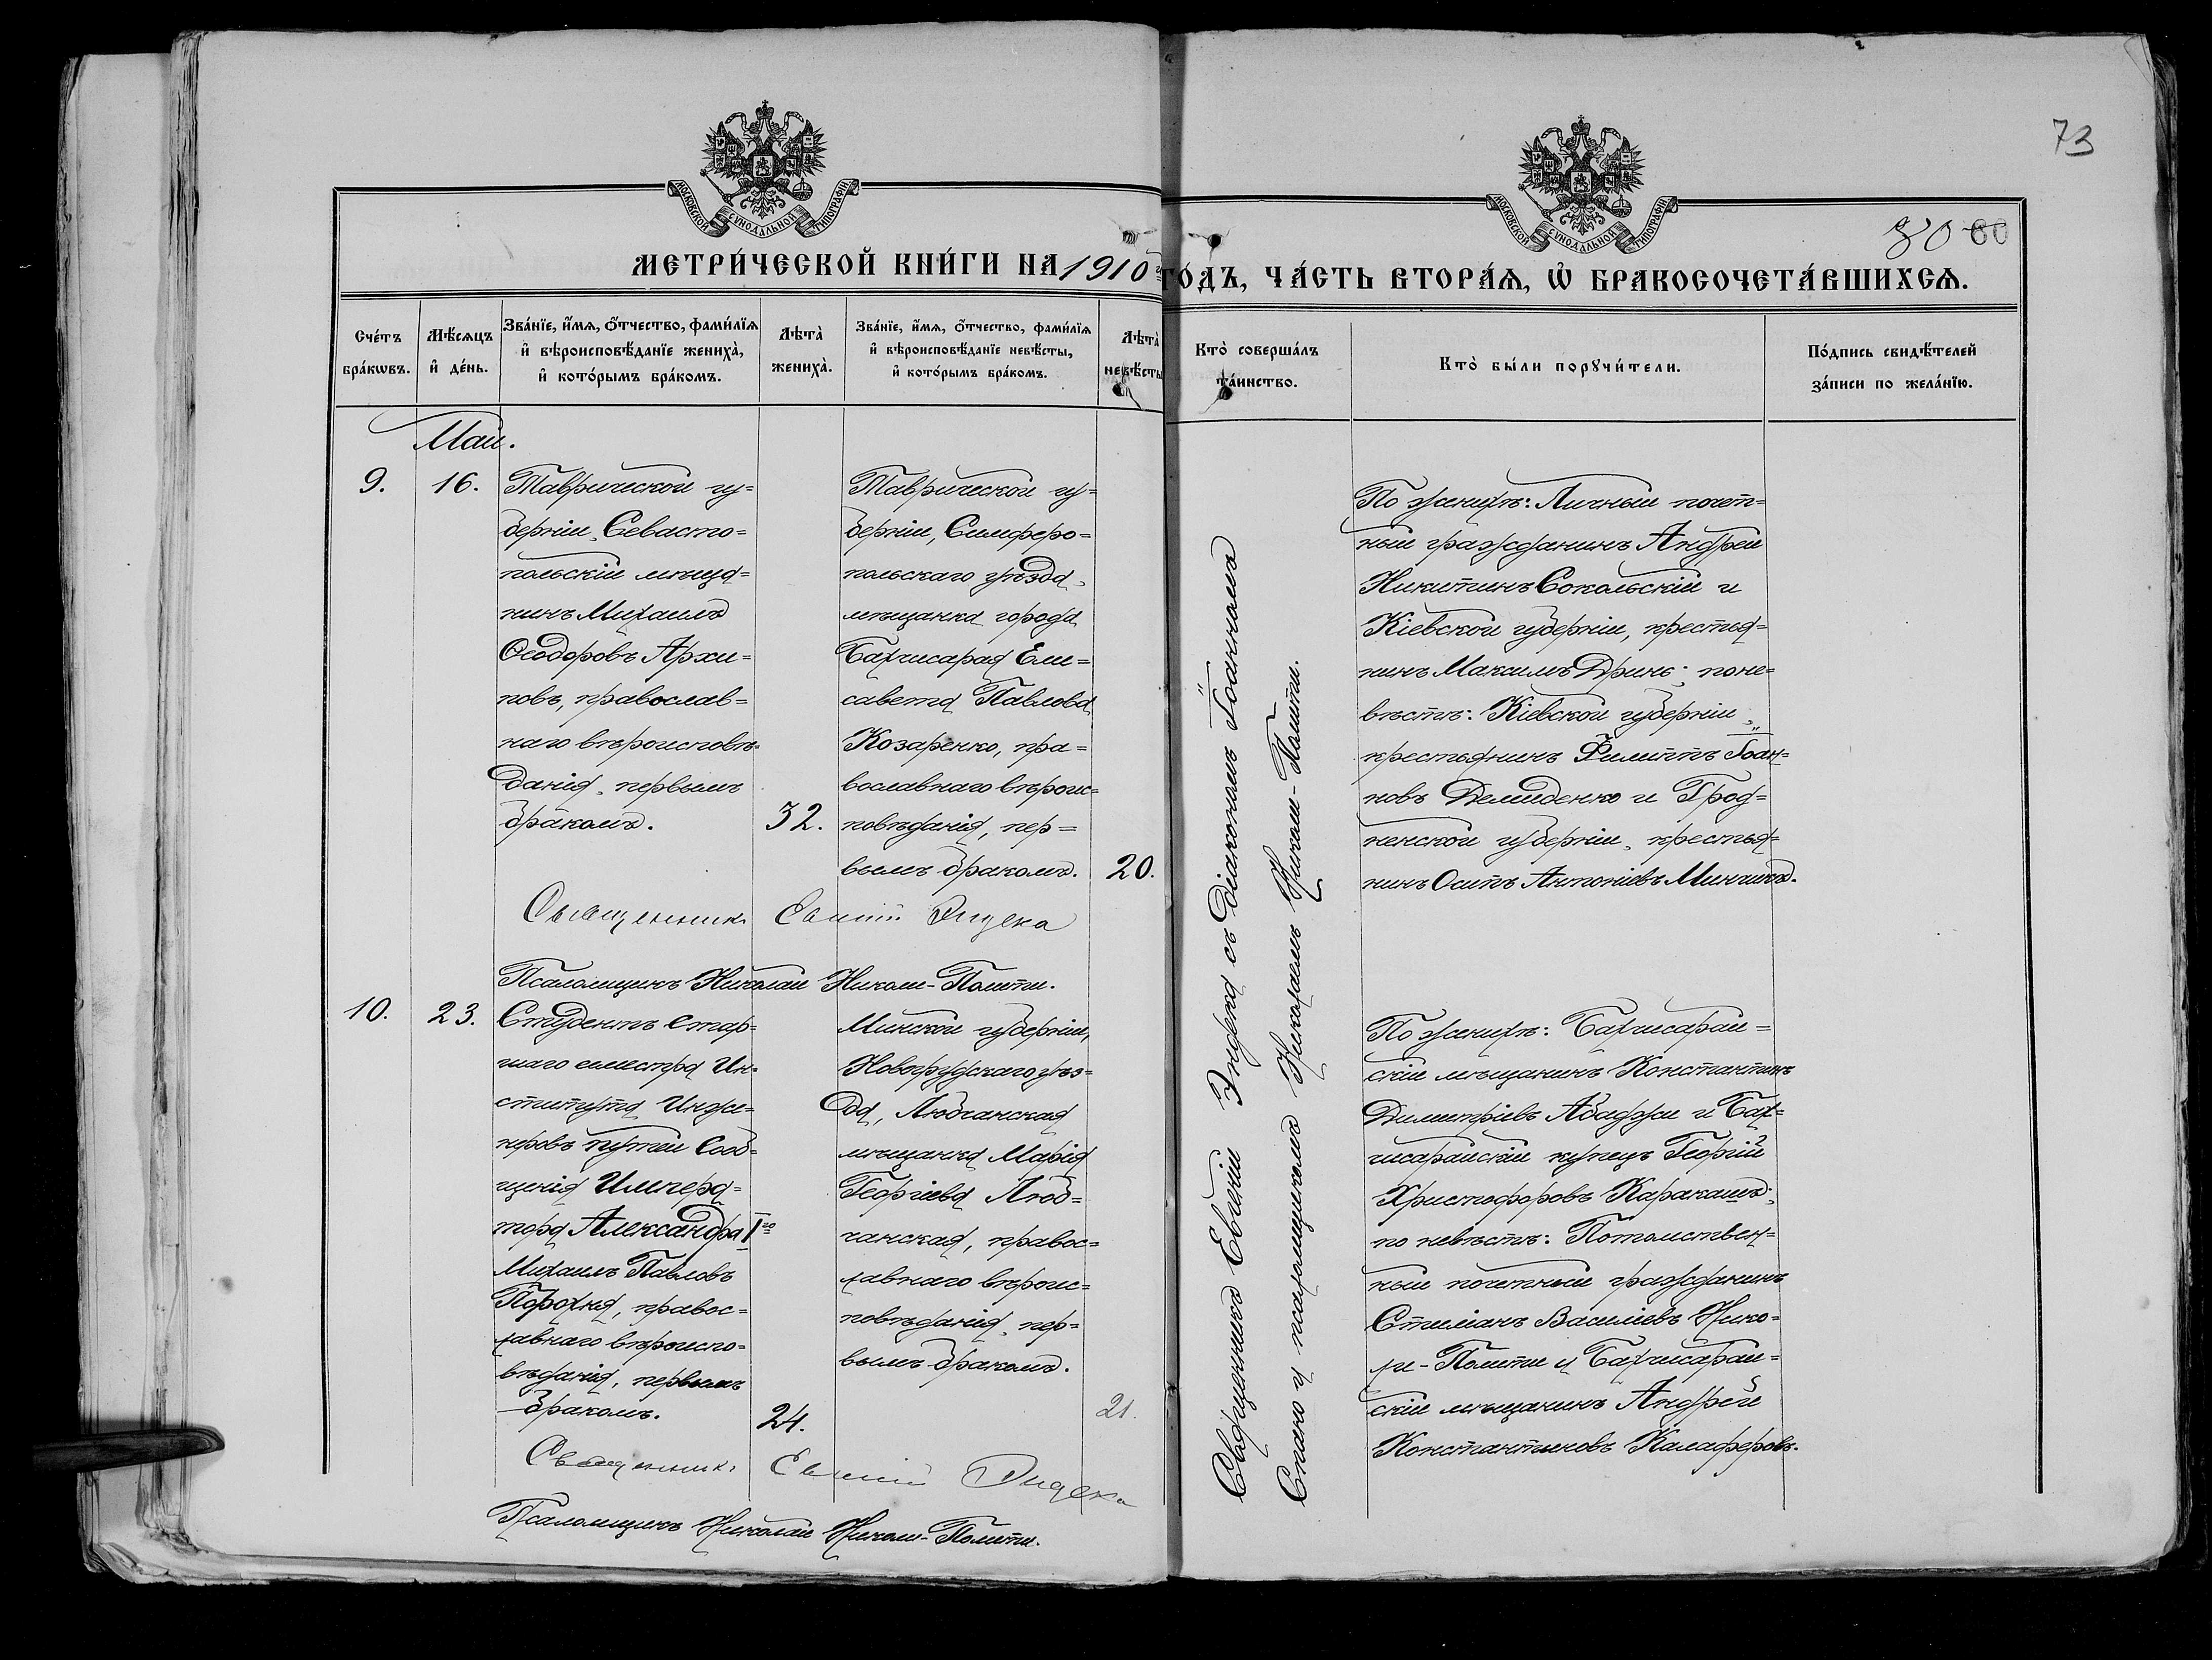 73
МОСКОВСКОЙ СѴНОДАЛЬНОЙ ТИПОГРАФІИ
МОСКОВСКОЙ СѴНОДАЛЬНОЙ ТИПОГРАФІИ
80 60
МЕТРИ́ЧЕСКОЙ КНИ́ГИ НА 1910 ГО́ДЪ, ЧА́СТЬ ВТОРА́Ѧ, Ѽ БРАКОСОЧЕТА́ВШИХСѦ.
Сче́тъ
бра́кѡвъ.
Мѣ́сѧцъ
и҆ де́нь.
Зва́нїе, и҆́мѧ, ѻ҆́тчество, фами́лїѧ
и҆ вѣроисповѣ́данїе жениха̀,
и҆ кото́рымъ бра́комъ.
Лѣта̀
жениха̀.
Зва́нїе, и҆́мѧ, ѻ҆́тчество, фами́лїѧ
и҆ вѣроисповѣ́данїе невѣ́сты,
и҆ кото́рымъ бра́комъ.
Лѣта̀
невѣ́сты
Кто̀ соверша́лъ
та́инство.
Кто̀ бы́ли порꙋчи́тели.
По́дпись свидѣ́телей
за́писи по жела́нїю.
Май.
9.
16.
Таврической гу=
берніи, Севасто=
польскій мѣща=
нинъ Михаилъ
Ѳеодоровъ Архи=
повъ, православ=
наго вѣроисповѣ=
данія, первымъ
бракомъ.
32.
Таврической гу=
берніи, Симферо=
польскаго уѣзда,
мѣщанка города
Бахчисарая Ели=
савета Павлова
Козаренко, пра=
вославнаго вѣроис=
повѣданія, пер=
вымъ бракомъ.
20.
Священникъ Евгеній Эндека
Псаломщикъ Николай Николи-Политти.
Священникъ Евгеній Эндека съ діакономъ Іоанномъ
Спано и псаломщикомъ Николаемъ Николи-Политти.
По женихѣ: Личный почет=
ный гражданинъ Андрей
Никитинъ Сокольскій и
Кіевской губерніи, крестья=
нинъ Максимъ Дринь; по не=
вѣстѣ: Кіевской губерніи,
крестьянинъ Филиппъ Іоан=
новъ Демиденко и Грод=
ненской губерніи, крестья=
нинъ Осипъ Антоніевъ
10.
23.
Студентъ стар=
шаго семестра Ин=
ститута Инже=
неровъ путей Сооб=
щенія Импера=
тора Александра Iго
Михаилъ Павловъ
Порохня, правос=
лавнаго вѣроиспо=
вѣданія, первымъ
бракомъ.
24.
Минской губерніи,
Новогрудскаго уѣз=
да, Любчанская
мѣщанка Марія
Георгіева Люб=
чанская, правос=
лавнаго вѣроис=
повѣданія, пер=
вымъ бракомъ.
21.
Священникъ Евгеній Эндека
Псаломщикъ Николай Николи-Политти.
По женихѣ: Бахчисарай=
скій мѣщанинъ Константинъ
Димитріевъ Абаджи и Бах=
чисарайскій купецъ Георгій
Христофоровъ Каракашъ;
по невѣстѣ: Потомствен=
ный почетный гражданинъ
Стиліанъ Василіевъ Нико=
ли-Политти и Бахчисарай=
скій мѣщанинъ Андрей
Константиновъ Калаферовъ.